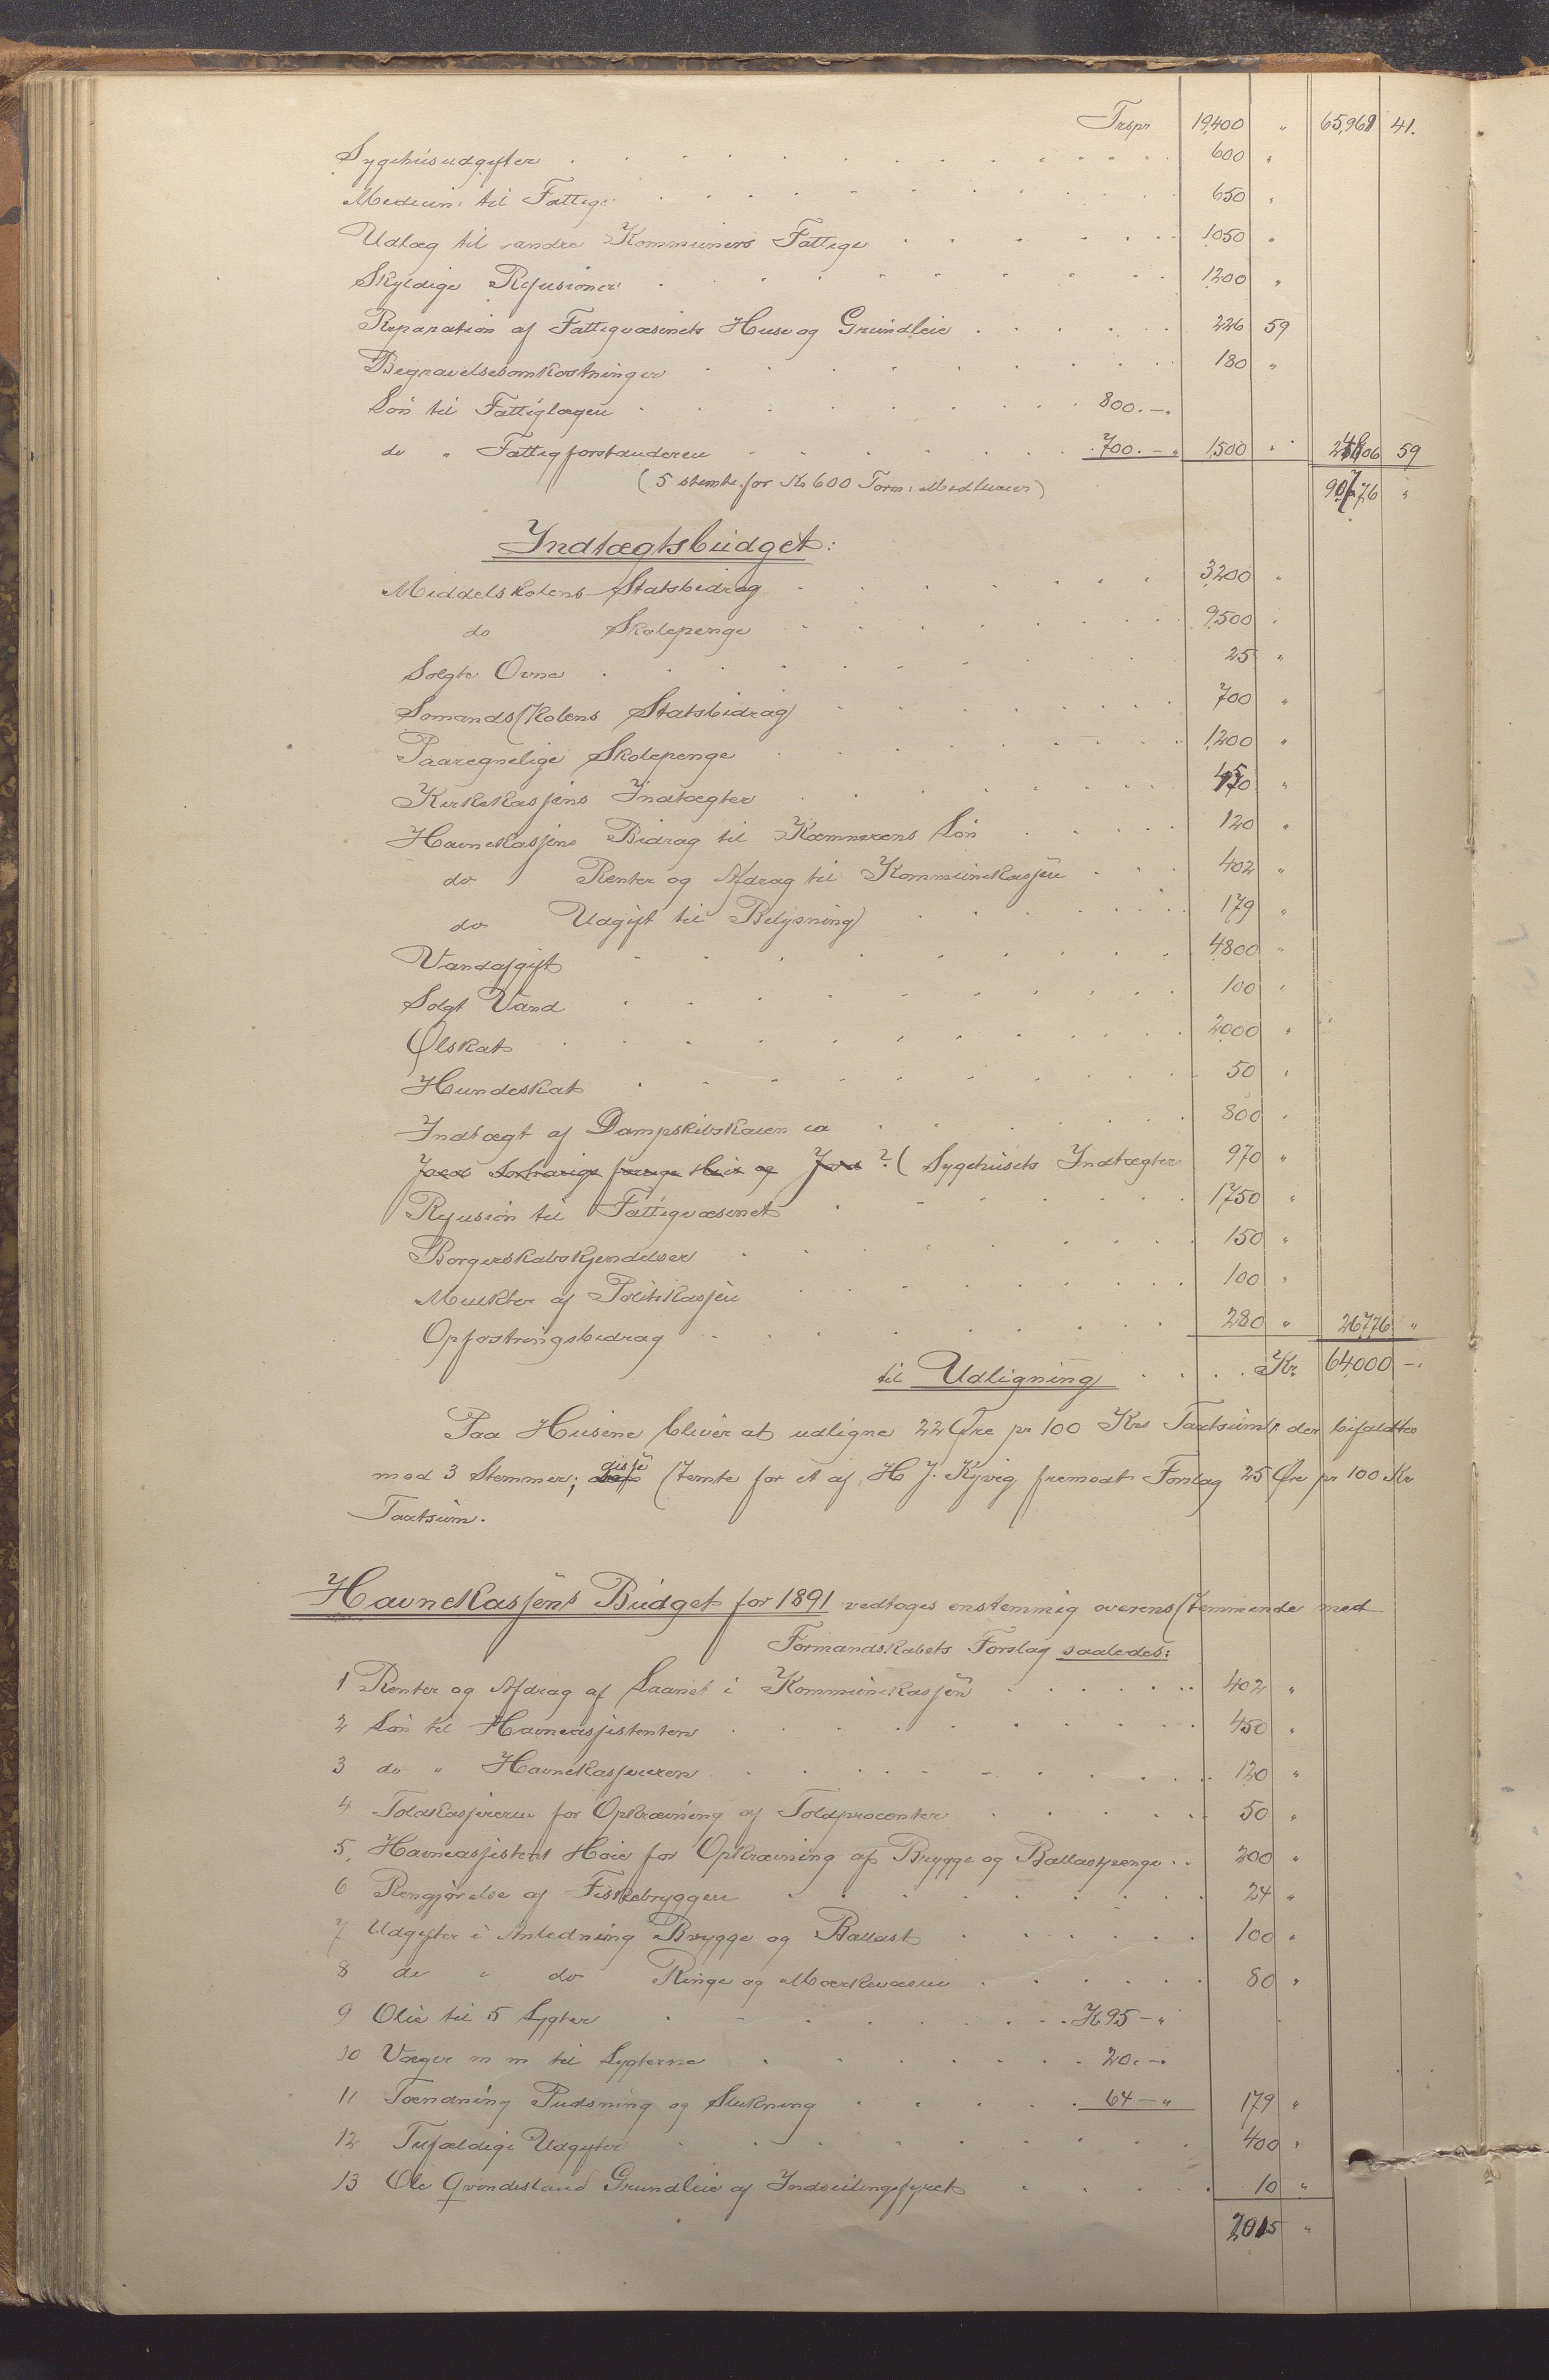 Trspr 19,400 " 65,969 41.
Sygehusudgifter 600 "
Medicin til Fattige 650 "
Udlæg til andre Kommuners Fattige 1050 "
Skyldige Refusioner 1200 "
Reparation af Fattigvæsenets Huse og Grundleie 226 59
Begravelsesomkostninger 180 "
Løn til Fattiglægen 800.—"
do " Fattigforstanderen 700.—" 1,500 " 24806 59
(5 stemte for Kr 600 Form: Medlemmer)
90,776 "
Indtægtsbudget:
Middelskolens Statsbidrag 3200 "
do Skolepenge 9,500 "
Solgte Ovne 25 "
Sømandsskolens Statsbidrag 700 "
Paaregnelige Skolepenge 1,200 "
Kirkekassens Indtægter 450 "
Havnekassens Bidrag til Kæmnerens Løn 120 "
do Renter og Afdrag til Kommunekassen 402 "
do Udgift til Belysning 179 "
Vandafgift 4800 "
Solgt Vand 100 "
Ølskat 2000 "
Hundeskat 50 "
Indtægt af Dampskibskaien ca 800 "
? ( Sygehusets Indtægter 970 "
Refusion til Fattigvæsenet 1750 "
Borgerskabskjendelser 150 "
Mulkter af Politikassen 100 "
Opfostringsbidrag 280 " 26776 "
til Udligning Kr. 64,000 —"
Paa Husene bliver at udligne 22 Øre pr 100 Krs Taxtsum der bifaldtes
med 3 Stemmer; stemte for et af H J. Kyvig fremsat Forslag 25 Øre pr 100 Kr
Taxtsum.
Havnekassens Budget for 1891 vedtoges enstemmig overensstemmende med
Formandskabets Forslag saaledes:
1 Renter og Afdrag af Laanet i Kommunekassen 402 "
2 Løn til Havneassistenten 450 "
3 do " Havnekassereren 120 "
4 Toldkassereren for Opkrævning af Toldprocenter 50 "
5, Havneassistent Høie for Opkrævning af Brygge og Ballastpenge 200 "
6 Rengjørelse af Fiskebryggen 24 "
7 Udgifter i Anledning Brygge og Ballast 100 "
8 do " do Ringe og Mærkevæsen 80 "
9 Olie til 5 Lygter K 95 —"
10 Væger m m til Lygterne 20.—"
11 Tænding Pudsning og Slukning 64 —" 179 "
12 Tilfældige Udgifter 400 "
13 Ole Qvindesland Grundleie af Indseilingsfyret 10 "
2015 "